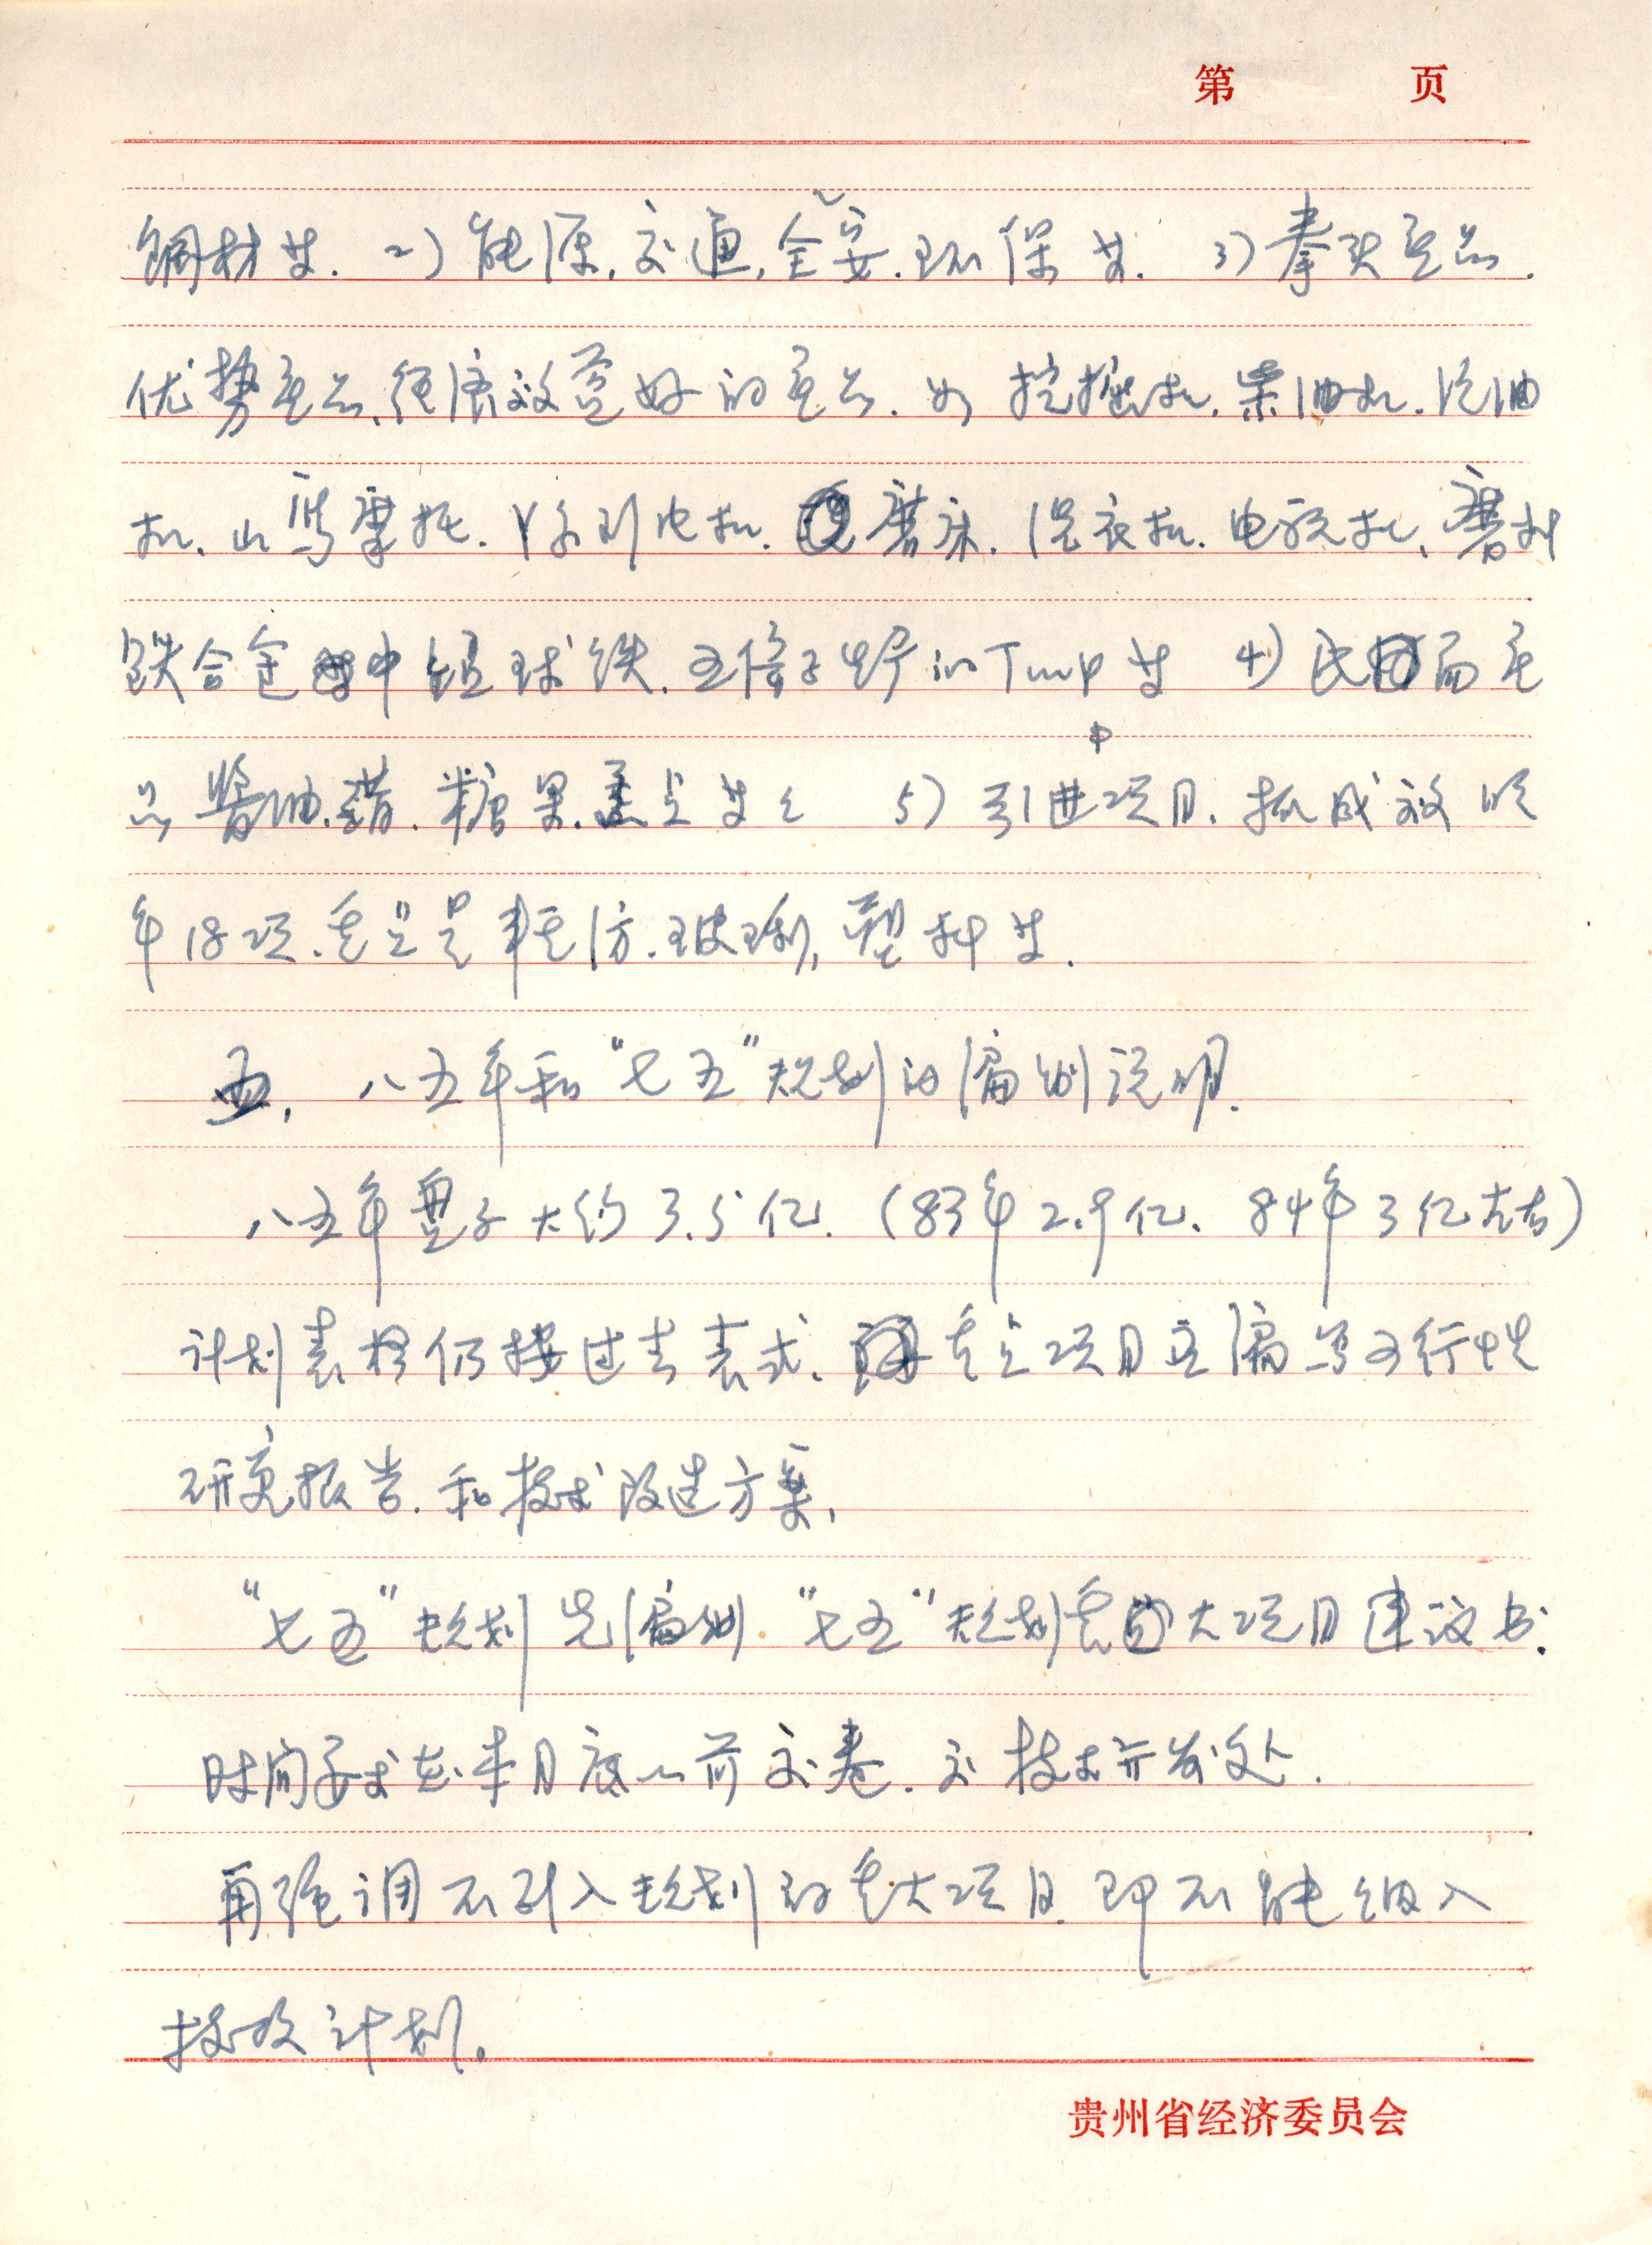 第 页
钢材等. 2) 能源, 交通, 安全. 环保等. 3) 拳头产品.
优势产品, 经济效益好的产品. 如挖掘机. 柴油机. 汽油
机. 山鹰摩托. Y系列电机. 磨床. 洗衣机. 电视机, 磨料
铁合金中 球铁. 五倍子 的Tmp等 4) 民用产
品 酱油. 醋. 糖果. 糕点等等 5) 引进项目. 抓成效 明
年18项. 重点是毛纺. 玻璃, 塑料等.
五, 八五年和“七五”规划的编制说明.
八五年盘子大约3.5亿. (83年2.9亿. 84年3亿左右)
计划表格仍按过去表式. 重点项目应编写可行性
研究报告. 和技术改造方案,
“七五”规划 先编制 “七五”规划重大项目建议书.
时间要求在本月底以前交卷. 交技术开发处.
再强调不列入规划的重大项目 即不能纳入
技改计划.
贵州省经济委员会